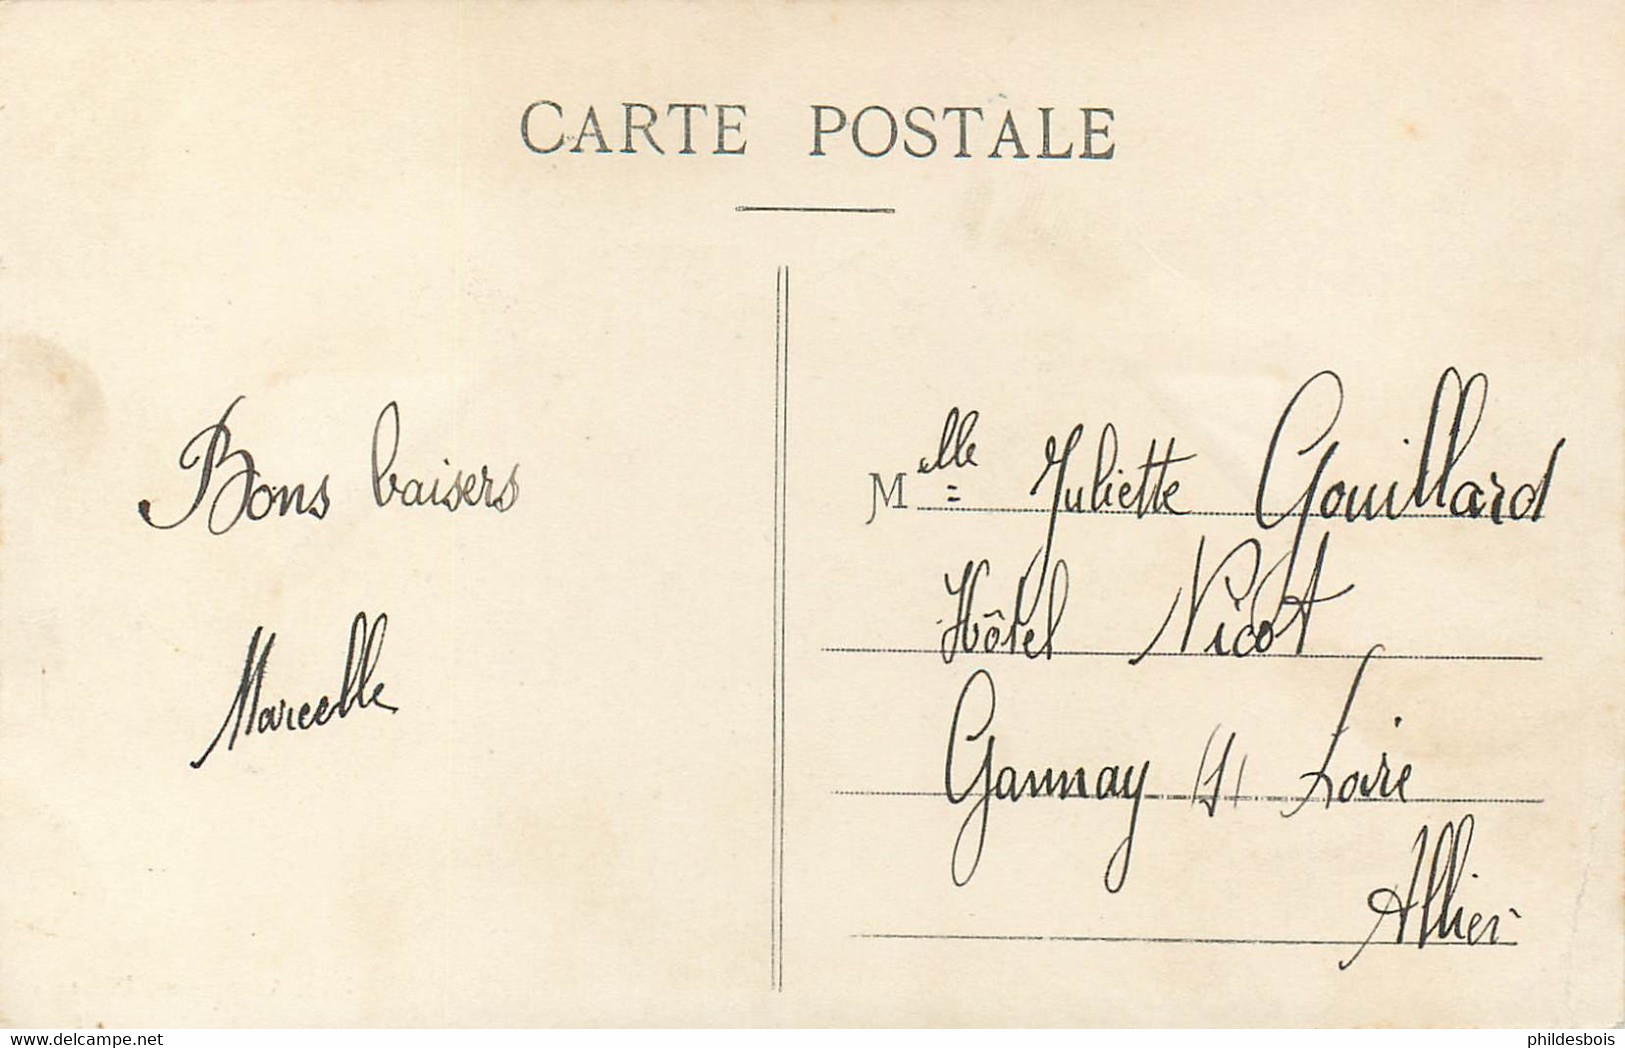 CARTE POSTALE
Bons baisers
Marcelle
Melle = Juliette Gouillard
Hôtel Nicot
Gannay s/ Loire
Allier
www.delcampe.net
phildesbois